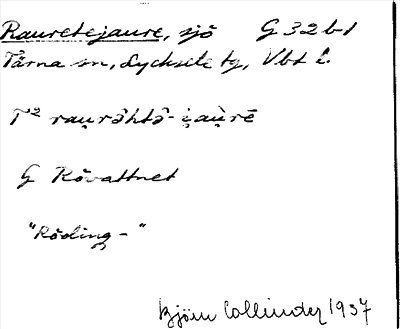 Rauretejaure, sjö G 32 b1
Tärna sn, Lycksele tg, Vbt l.
T² rau̯rə̂htə̂-i̯au̯rē
G Rövattnet
"Röding-"
Björn Collinder 1937